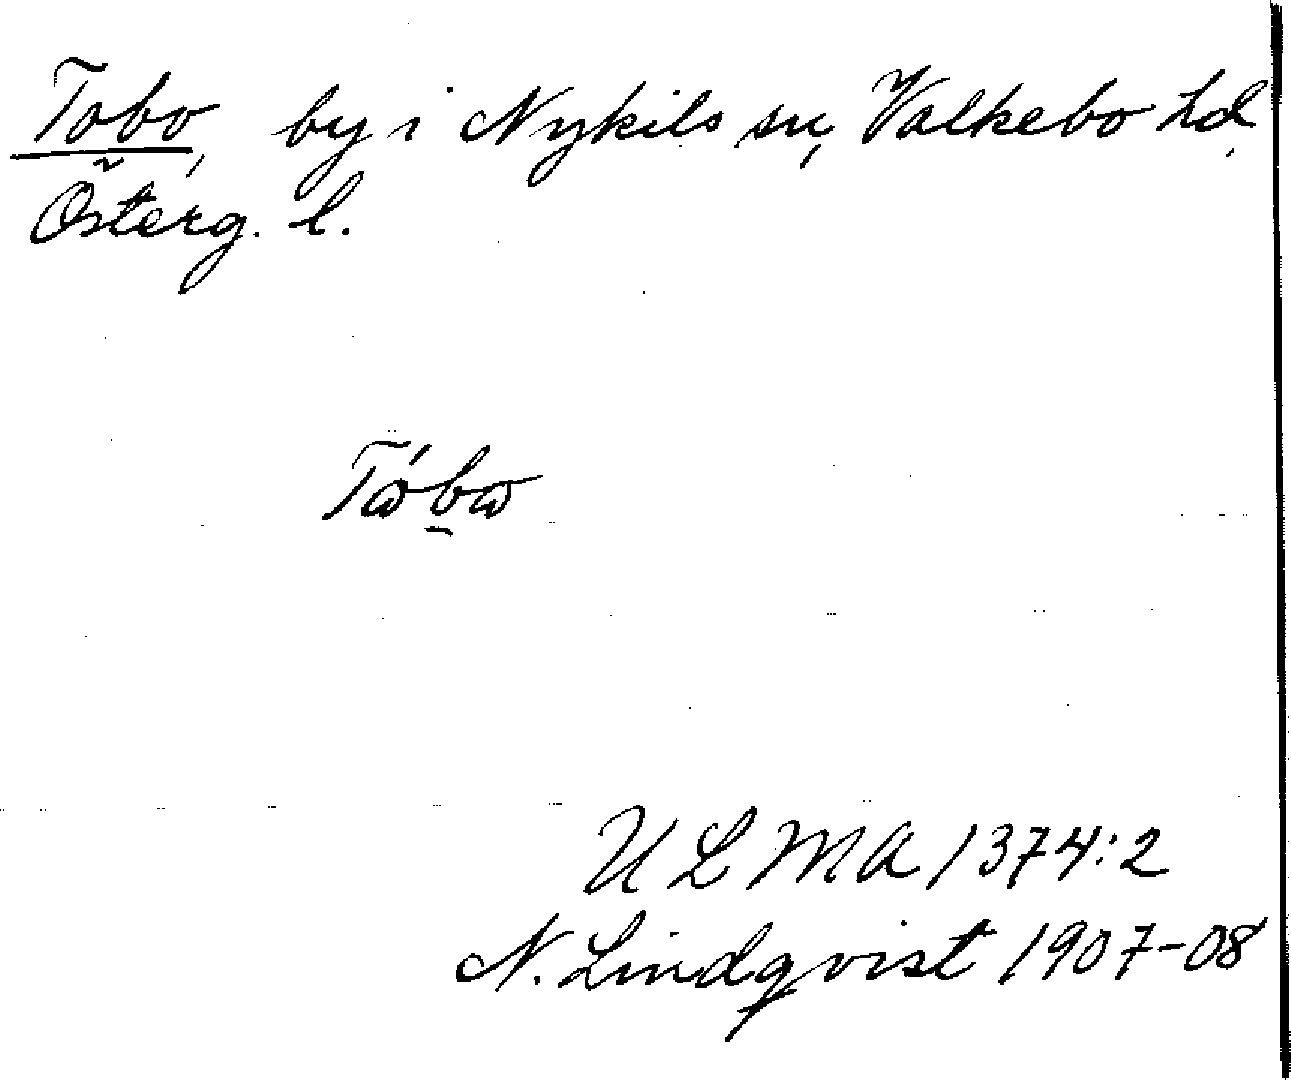 Tobo, by i Nykils sn, Valkebo hd,
Österg. l.
Tɷ́bɷ
ULMA 1374:2
N. Lindqvist 1907-08